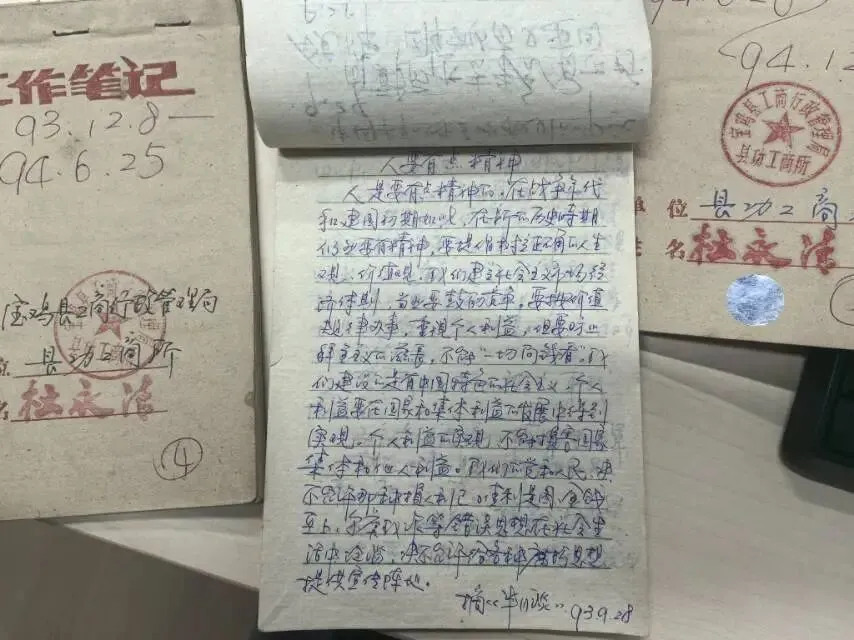 工作笔记
93.12.8—
94.6.25
宝鸡县工商行政管理局
县功工商所
杜永洁
④
人要有点精神
人是要有点精神的。在战争年代
和建国初期如此,在新的历史时期
仍然要有精神,要提倡树立正确的人生
观、价值观。我们建立社会主义市场经
济体制,当然要鼓励竞争,要按价值
规律办事,重视个人利益,但要防止
拜金主义的滋长,不能“一切向钱看”。我
们建设的是有中国特色的社会主义,个人
利益要在国家和集体利益的发展中得到
实现。个人利益的实现,不能损害国家
集体和他人利益。我们的党和人民,决
不允许那种损人利己、唯利是图、金钱
至上、等错误思想在社会生
活中泛滥,决不允许给各种腐朽思想
提供宣传阵地。
摘 93.9.28
94.12
宝鸡县工商行政管理局
县功工商所
单位 县功工商
姓名 杜永洁